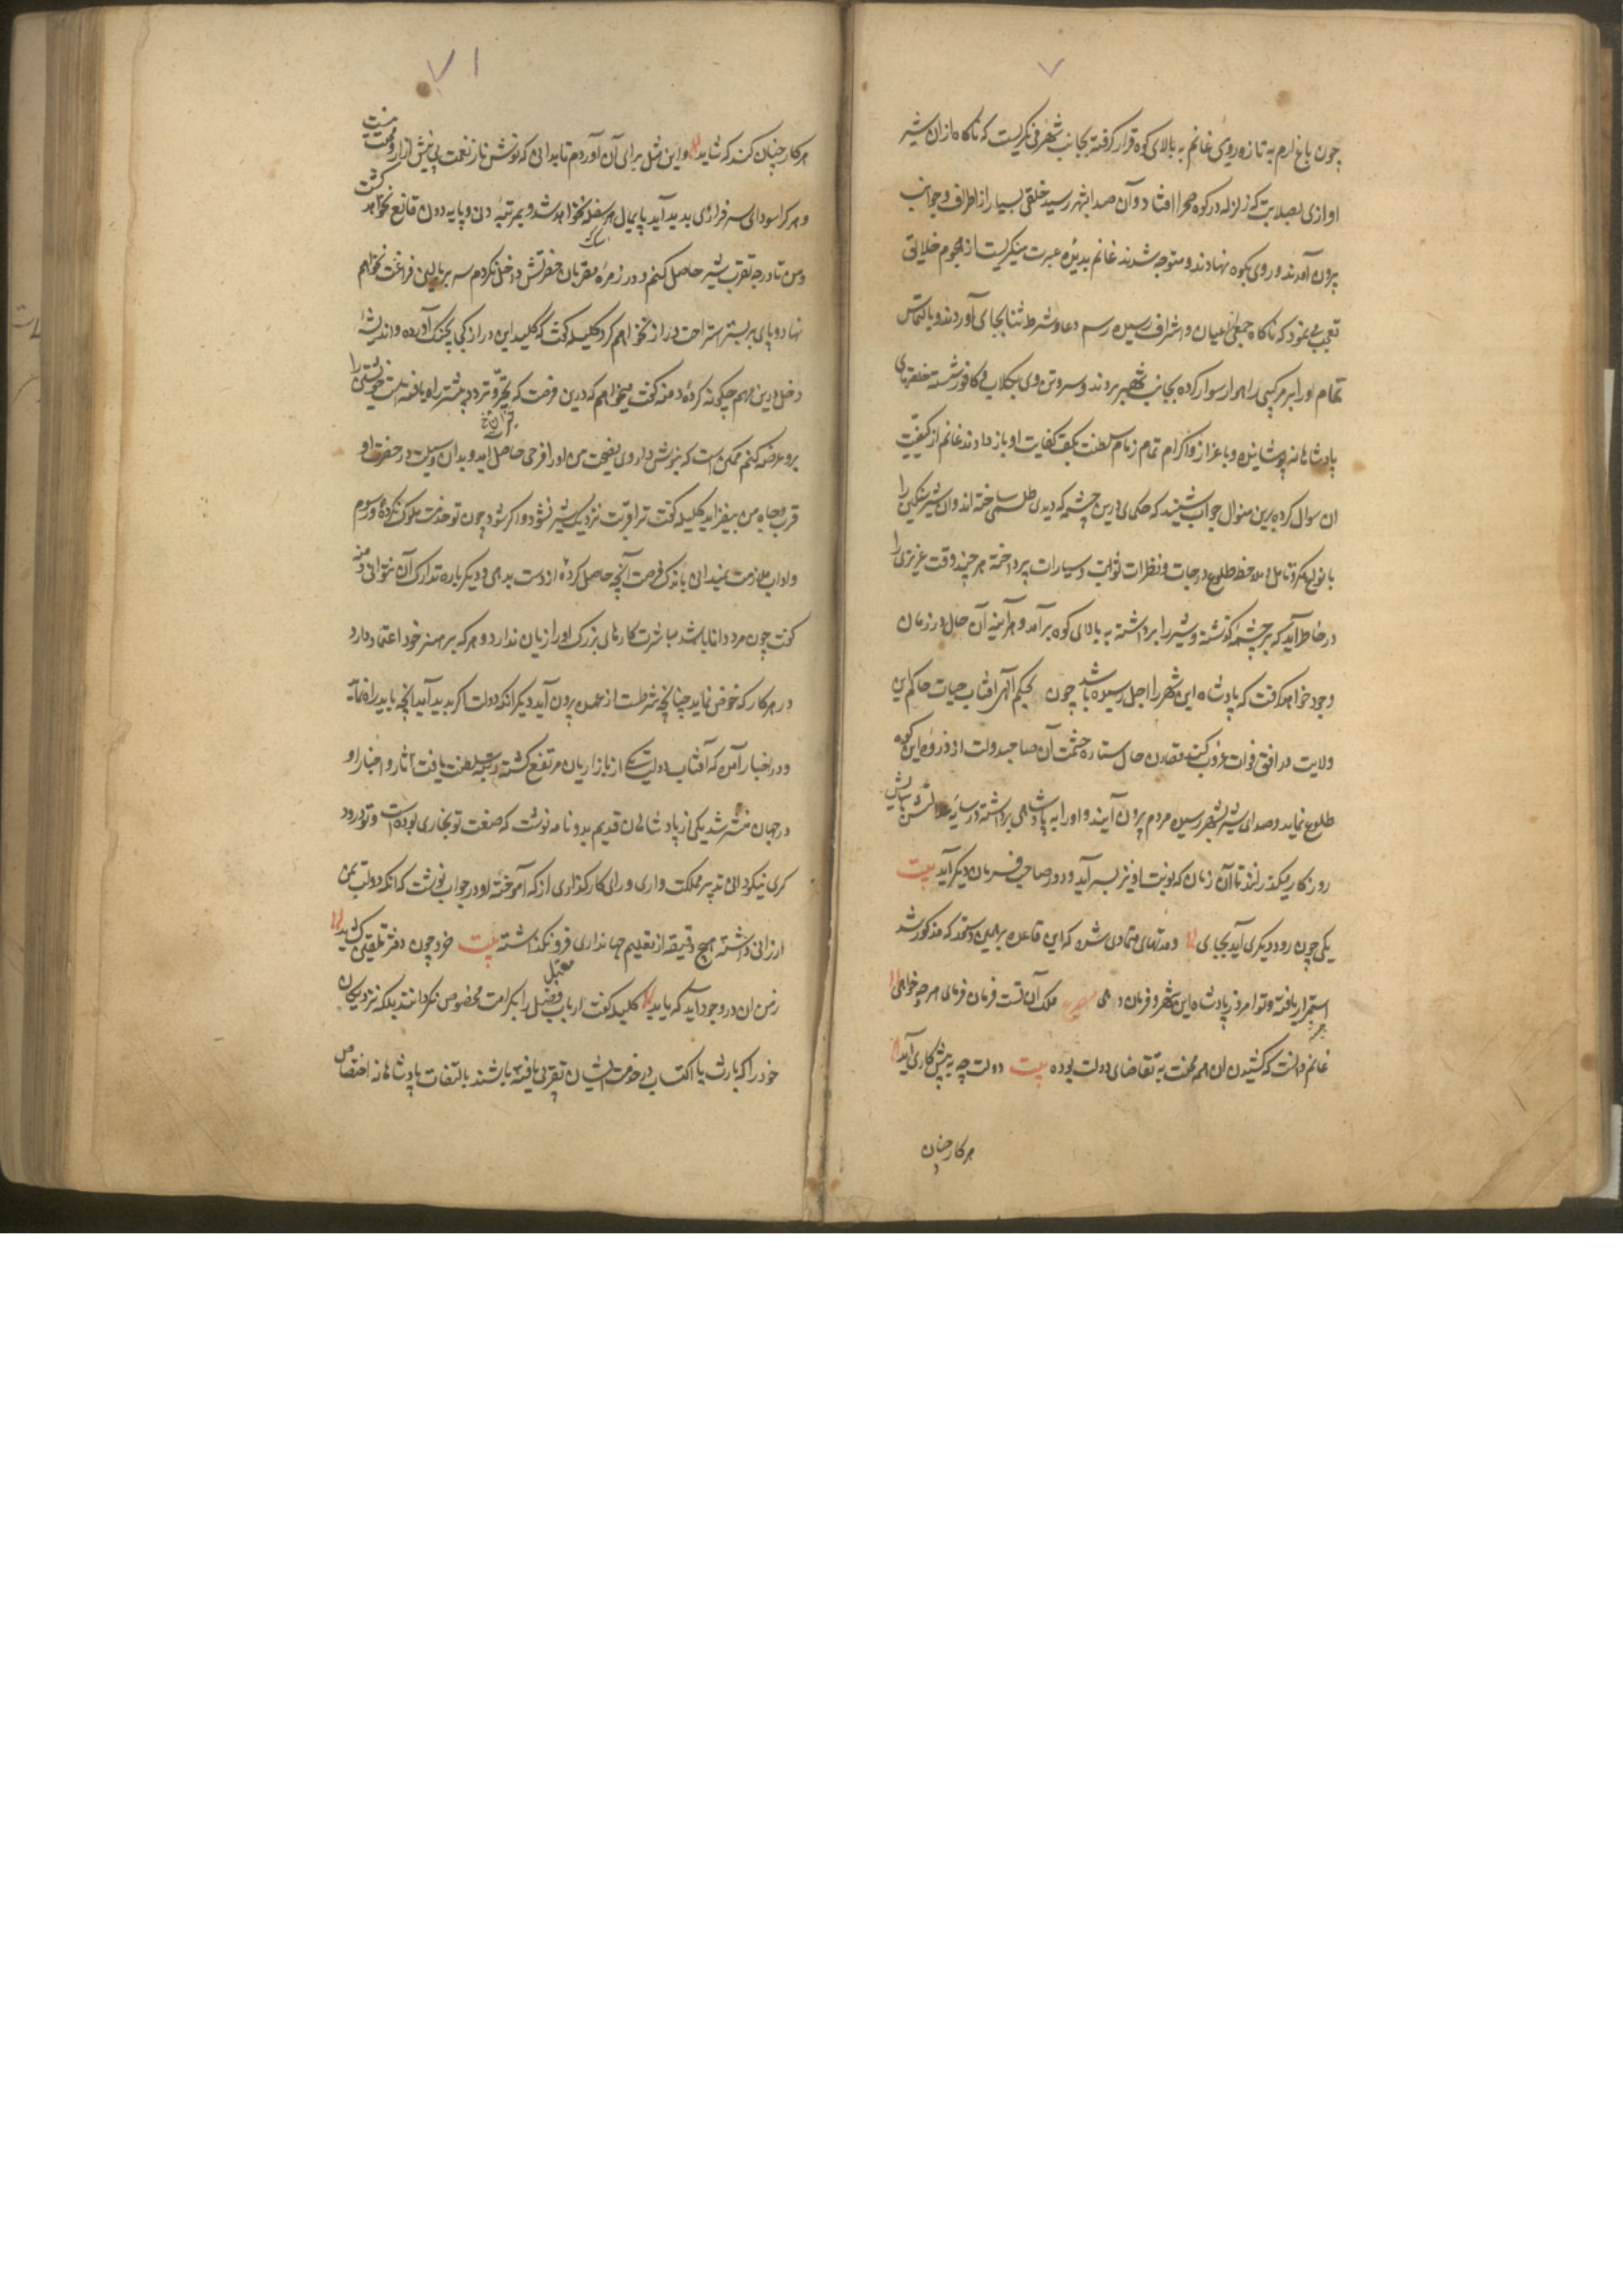 ٧
چون باغ ارم به تازه روی غانم به بالای کوه قرار گرفته بجانب شهر می نگریست که ناگاه ازان شیر
اوازی بصلابت که زلزله در کوه و صحرا افتاد و آن صدا بشهر رسید خلقی بسیار از اطراف و جوانب
بیرون آمدند و روی بکوه نهادند و متوجه شدند غانم بدیدهٔ عبرت مینگریست از هجوم خلایق
تعجب می نمود که ناگاه جمعی از اعیان و اشراف رسیده رسم دعا و شرط ثنا بجای آوردند و بالتماس
تمام او را بر مرکبی راهوار سوار کرده بجانب شهر بردند و سر و تن وی بگلاب و کافور شسته خلعتهای
پادشاهانه پوشانیده و باعزاز و اکرام تمام زمام سلطنت بکف کفایت او باز دادند غانم از کیفیت
ان سوال کرده برین منوال جواب شنید که حکمای درین چشمه که دیدی طلسمی ساخته اند وان شیر سنگین را
بانواع فکر و تامل و ملاحظ طلوع درجات و نظرات ثوابت و سیارات پرداخته هر چند وقت عزیزی را
در خاطر آید که بر چشمه گذشته و شیر را برداشته به بالای کوه برآمد و هر آینه آن حال در زمان
وجود خواهد گفت که پادشاه این شهر را اجل رسیده باشد چون بحکم آلهی آفتاب حیات حاکم این
ولایت در افق فوات غروب کند مقارن حال ستاره حشمت آن صاحبدولت از ذروه این کوه
طلوع نماید و صدای شیر بشهر رسیده مردم بیرون آیند و او را به پادشاهی برداشته در سایهٔ عدالتش
روزکار میگذرانند تا آن زمان که نوبت او نیز بسر آید و دور صاحب فرمان دیگر آید بیت
یکی چون رود دیگری آید بجای و مدتهای متمادی شد که این قاعده برهمین دستور که مذکور شد
استمرار یافته و توا مروز پادشاه این شهر و فرمان دهی مصرع ملک آن تست فرمان فرمای هر چه خواهی
غانم دانست که کشیدن ان همه محنت به تقاضای دولت بوده بیت دولت چو به پیش کاری آید
هر کار چنان
٧١
هر کار چنان کند که شاید و این مثل برای آن آوردم تا بدانی که نوش ناز نعمت بی نیش آزار و محنت نیست
و هر کرا سودای سرفرازی بدید آید پایمال هر سفله نخواهد شد و بمرتبهٔ دنی و پایه دون قانع نخواهد گشت
و من تا درجه تقرب شیر حاصل نکنم و در زمره مقربان حضرتش داخل نکردم سر بر بالین فراغت نخواهم
نهاد و پای بر بستر استراحت دراز نخواهم کرد کلیله گفت که کلید این در از کی بچنگ آورده و اندیشهٔ
دخل درین مهم چگونه کردهٔ دمنه گفت میخواهم که درین فرصت که تحیر و تردد بشیر راه یافته است خویشتن را
برو عرضه کنم ممکن است که بنوش داروی نصیحت من او را فرحی حاصل آید و بدان وسیلت در حضرت او
قرب و جاه من بیفزاید کلیله گفت ترا قربت نزدیک شیر نشود و اگر شود چون تو خدمت ملوک نکردهٔ و رسوم
و اداب ملازمت نمیدانی باندک فرصت آنچه حاصل کردهٔ از دست بدهی و دیگر باره تدارک آن نتوانی دمنه
گفت چون مرد دانا باشد مباشرت کارهای بزرگ او را زیان ندارد و هر که بر هنر خود اعتماد دارد
در هر کار که خوض نماید چنانچه شرطست از عهده بیرون آید دیگر انکه دولت اگر بدید آید انچه باید راه نماید
و در اخبار آمده که آفتاب دولت یکی از بازاریان مرتفع گشته رتبهٔ سلطنت یافت آثار و اخبار او
در جهان منتشر شد یکی از پادشاهان قدیم بدو نامه نوشت که صنعت تو نجاری بوده است و تو درود
کری نیکو دانی تدبیر مملکت داری و رای کارگذاری از که آموختهٔ او در جواب نوشت که انکه دولت بمن
ارزانی داشته هیچ دقیقه از تعلیم جهانداری فرو نگذاشته بیت خرد چون دفتر تلقین کشید
ز من ان در وجود آید که باید کلیله گفت ارباب فضل را بکرامت مخصوص نگردانند بلکه نزدیکان
خود را که بارث یا اکتساب در خدمت ایشان تقربی یافته باشند بالتفات پادشاهانه اختصاص